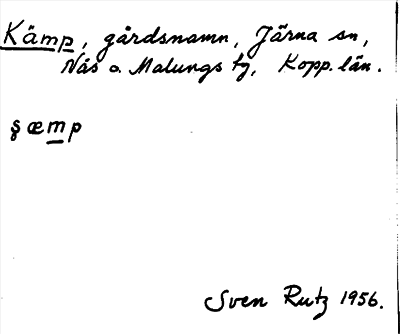 Kämp, gårdsnamn, Järna sn,
Nås o. Malungs tg, Kopp. län.
§æmp
Sven Rutz 1956.